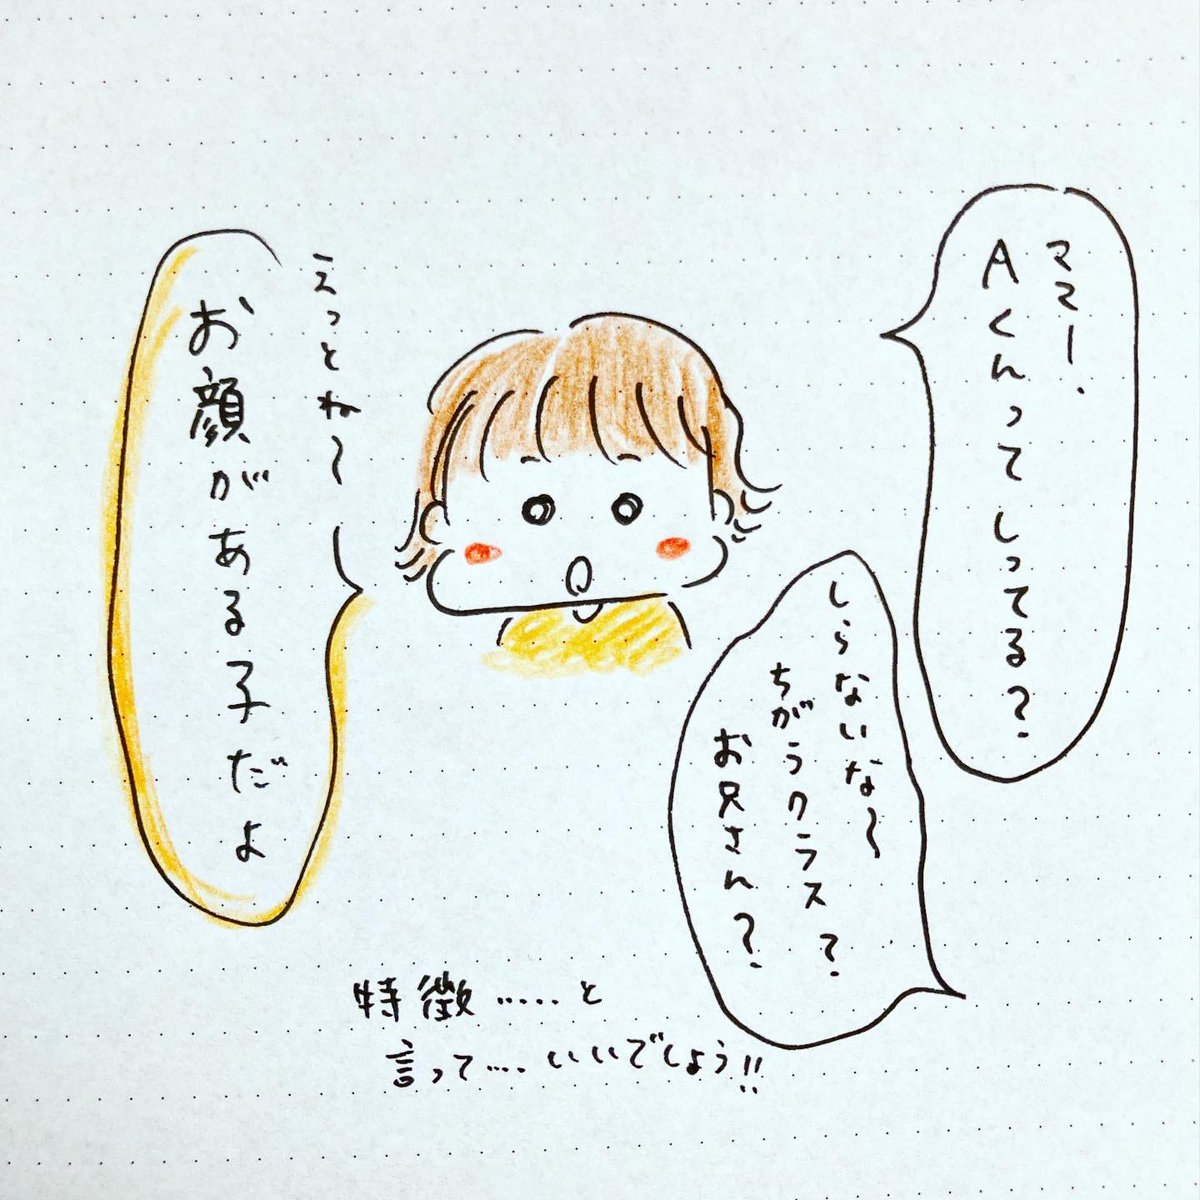 ママー、
Aくんってしってる？
しらないな〜
ちがうクラス？
お兄さん？
えっとね〜
お顔がある子だよ
特徴……と
言って….いいでしょう!!